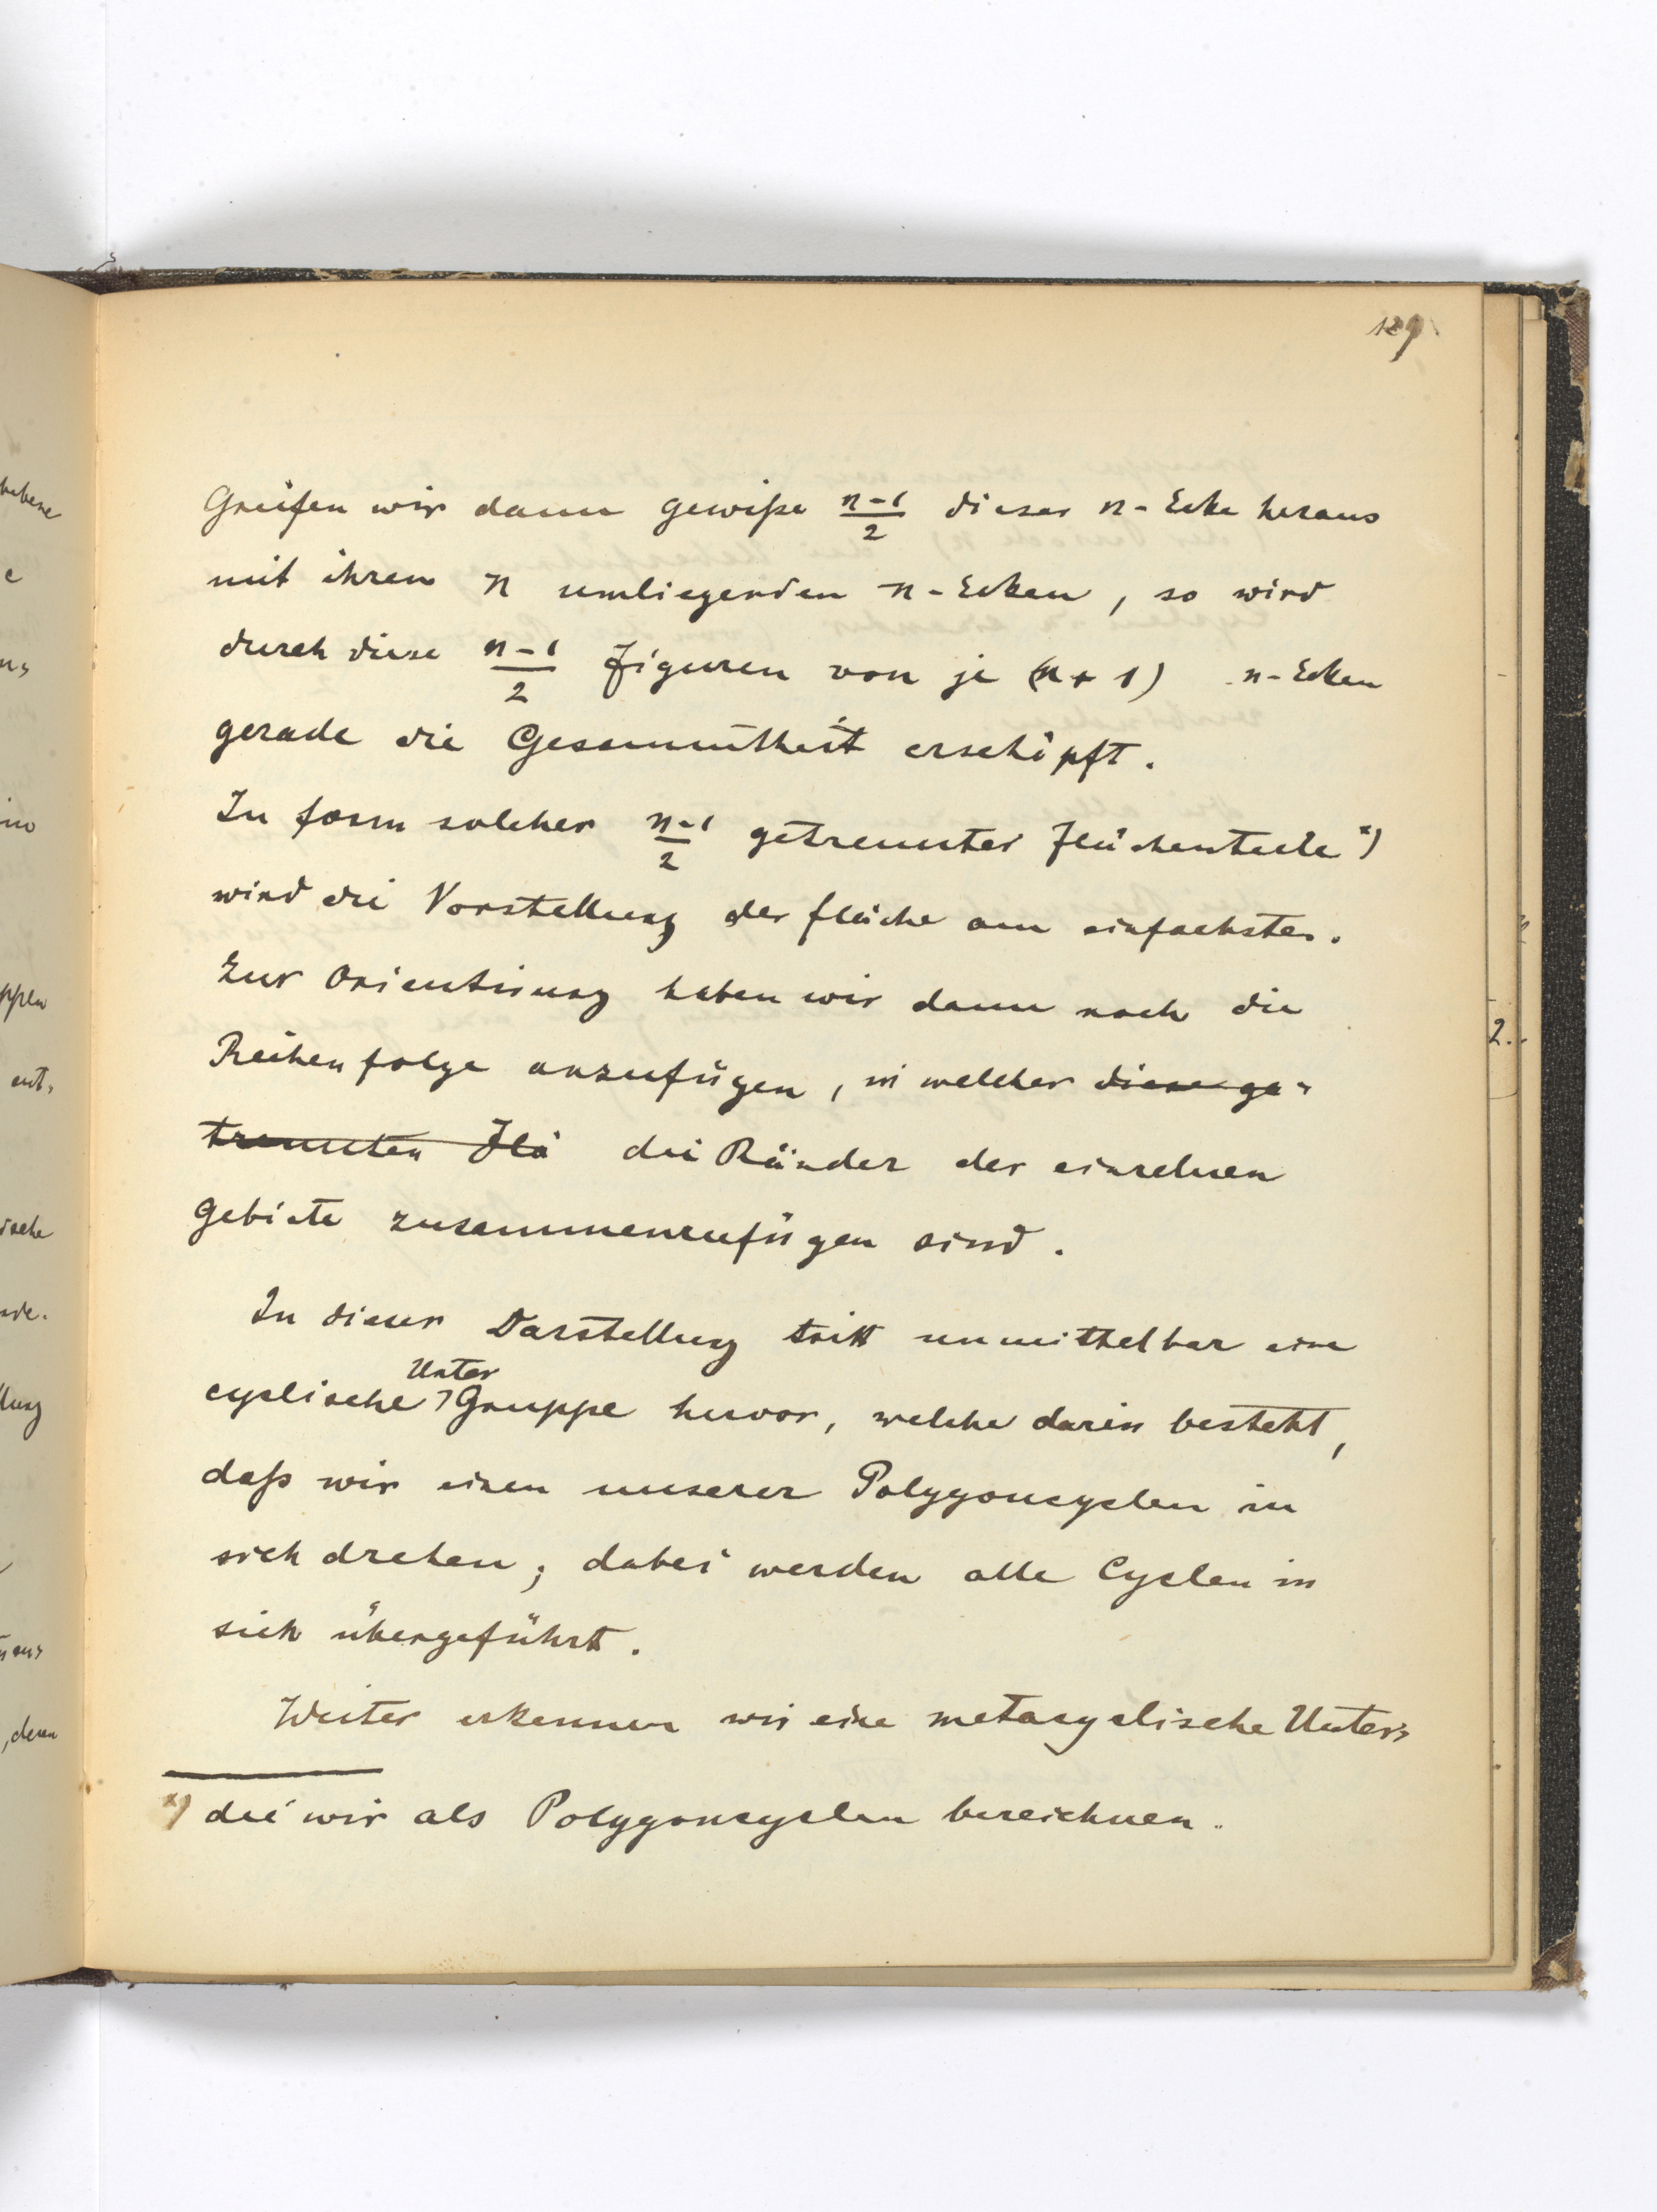 129
Greifen wir dann gewiße n-1/2 dieser n-Ecke heraus
mit ihren n umliegenden n-Ecken, so wird
durch diese n-1/2 Figuren von je (n+1) n-Ecken
gerade die Gesammtheit erschöpft.
In form solcher n-1/2 getrennter Flächenteile *)
wird die Vorstellung der fläche am einfachsten.
Zur Orientirung haben wir dann noch die
Reihenfolge anzufügen, in welcher diese ge-
trennten Flä die Ränder der einzelnen
Gebiete zusammenzufügen sind.
In dieser Darstellung tritt unmittelbar eine
Unter
cyclische Gruppe hervor, welche darin besteht,
daß wir einen unserer Polygoncyclen in
sich drehen; dabei werden alle Cyclen in
sich übergeführt.
Weiter erkennen wir eine metacyclische Unter-
*) die wir als Polygoncyclen bezeichnen.